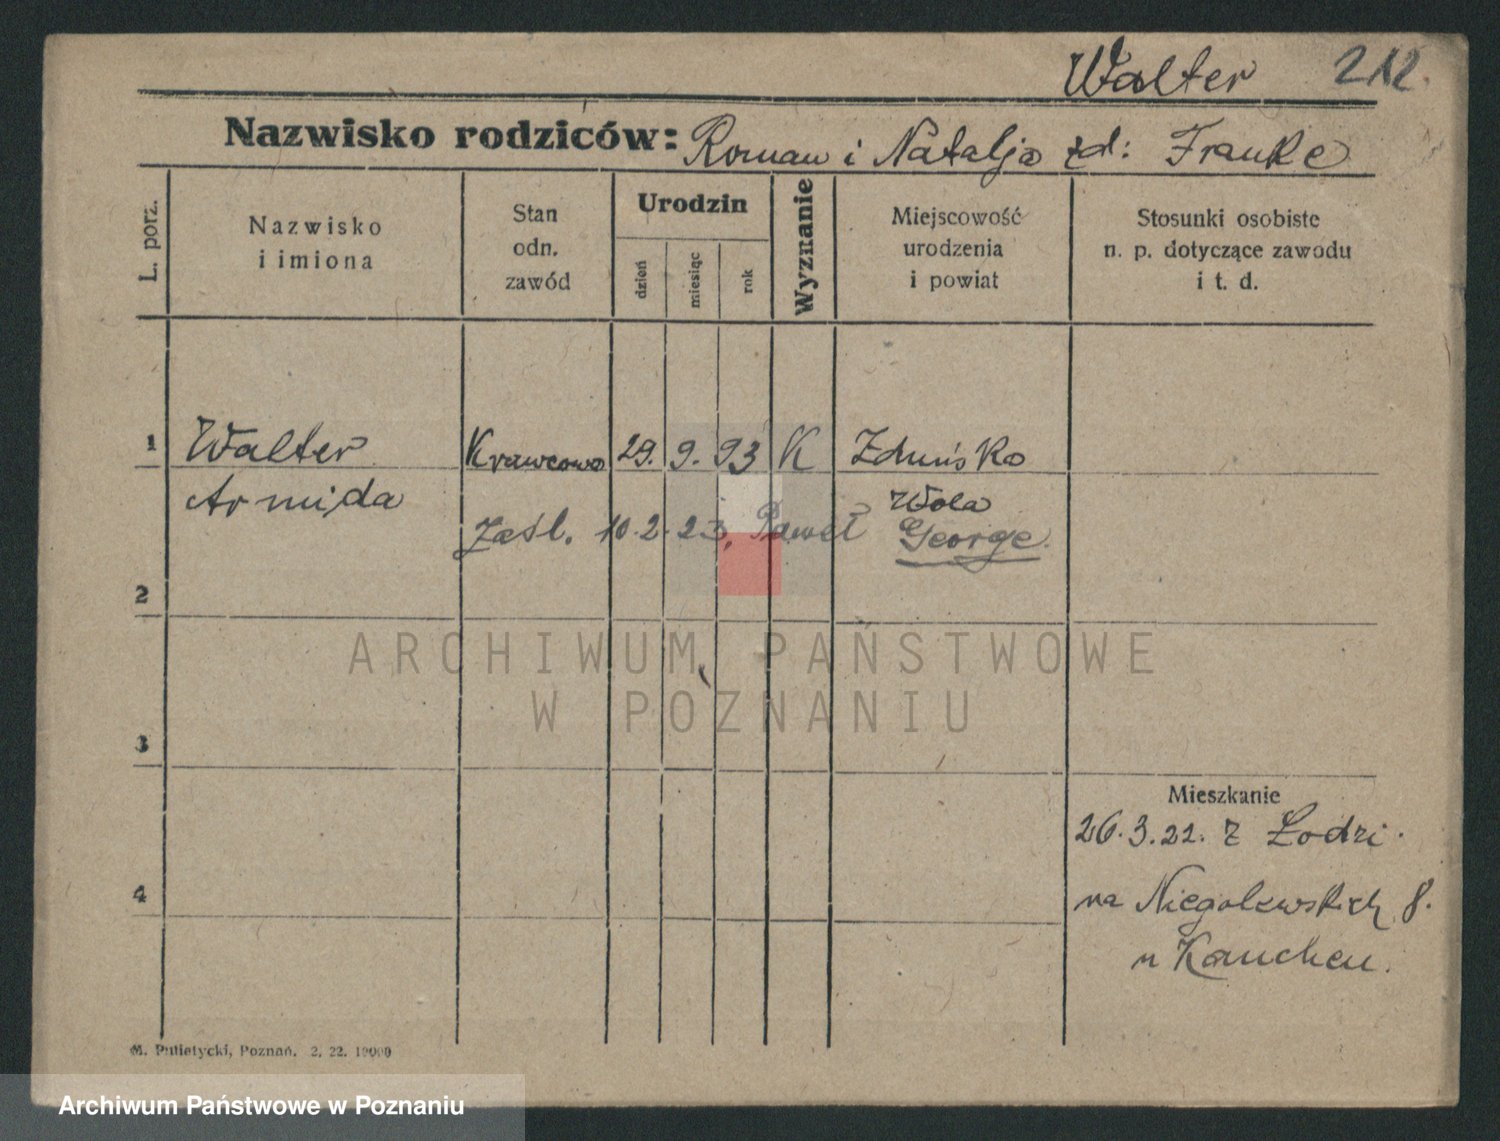 Walter 212.
Nazwisko rodziców: Roman i Natalja zd: Franke
L. porz.
Nazwisko
i imiona
Stan
odn.
zawód
Urodzin
dzień
miesiąc
rok
Wyznanie
Miejscowość
urodzenia
i powiat
Stosunki osobiste
n. p. dotyczące zawodu
i t. d.
1 Walter Krawcowa 29. 9. 93 K Zduńska
Armida Wola
Zaśl. 10.2.23. Paweł George.
2
ARCHIWUM PAŃSTWOWE
W POZNANIU
3
Mieszkanie
26.3.22. z Łodzi.
4
na Niegolewskich 8.
u Kauchen.
M. Putiatycki, Poznań. 2. 22. 10000
Archiwum Państwowe w Poznaniu